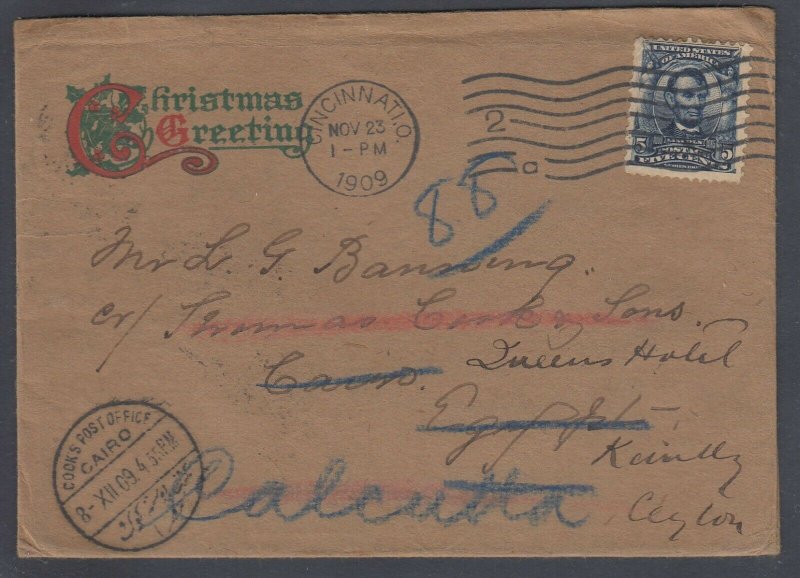 Christmas
Greeting
CINCINNATI, O.
NOV 23
1-PM
1909
2
a
UNITED STATES
OF AMERICA
5 5
POSTAGE
FIVE CENTS
88
Mr L. G. Banning.
c/ Thomas Cook & Sons.
Cairo.
Queens Hotel
Egypt.
Kandy
Ceylon
Calcutta
COOKS POST OFFICE
CAIRO
8-XII 09.4
PM